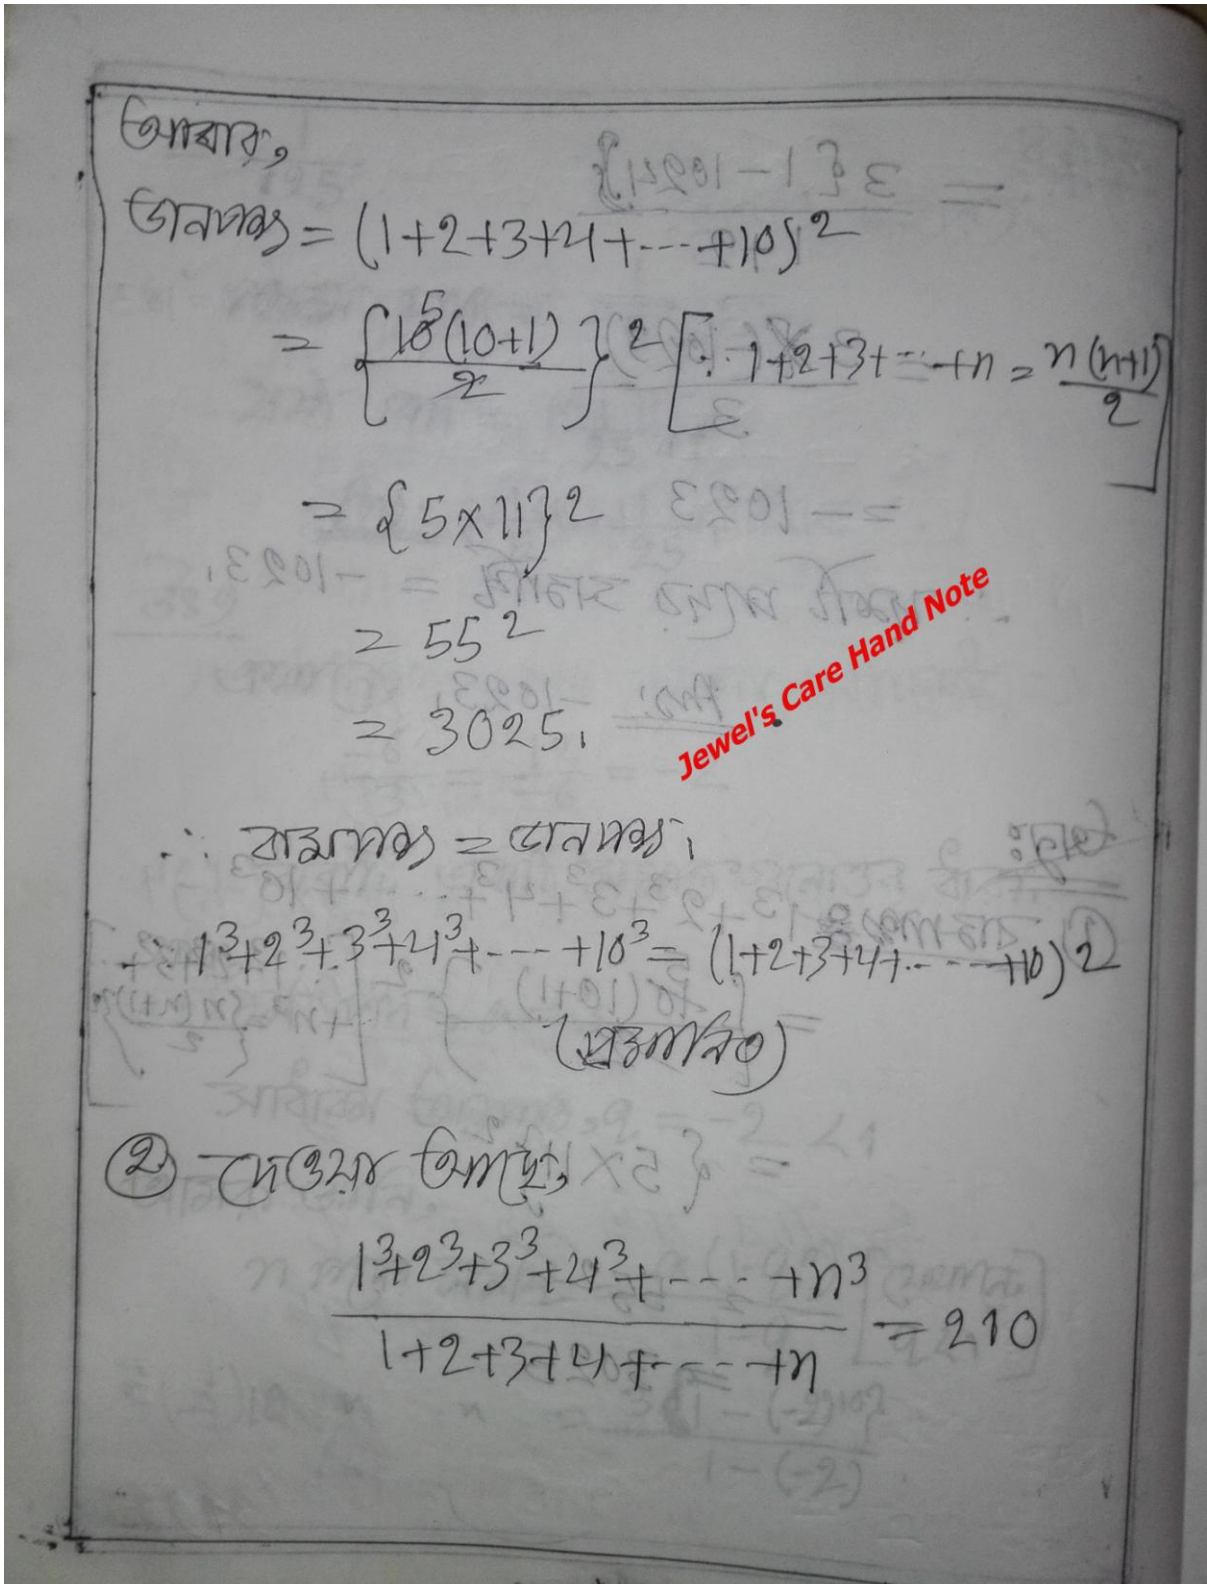 আবার,
ডানপক্ষ = (1+2+3+4+----+10)²
= {10 5(10+1)/2}² [∵ 1+2+3+---+n = n(n+1)/2]
= {5×11}²
= 55²
= 3025.
Jewel's Care Hand Note
∴ বামপক্ষ = ডানপক্ষ।
∴ 1³+2³+3³+4³+----+10³ = (1+2+3+4+-----+10)²
(প্রমাণিত)
② দেওয়া আছে,
1³+2³+3³+4³+----+n³
/ 1+2+3+4+----+n = 210